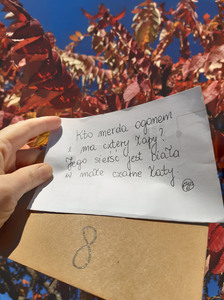 Kto merda ogonem
i ma cztery łapy?
Jego sierść jest biała
w małe czarne łaty.
8